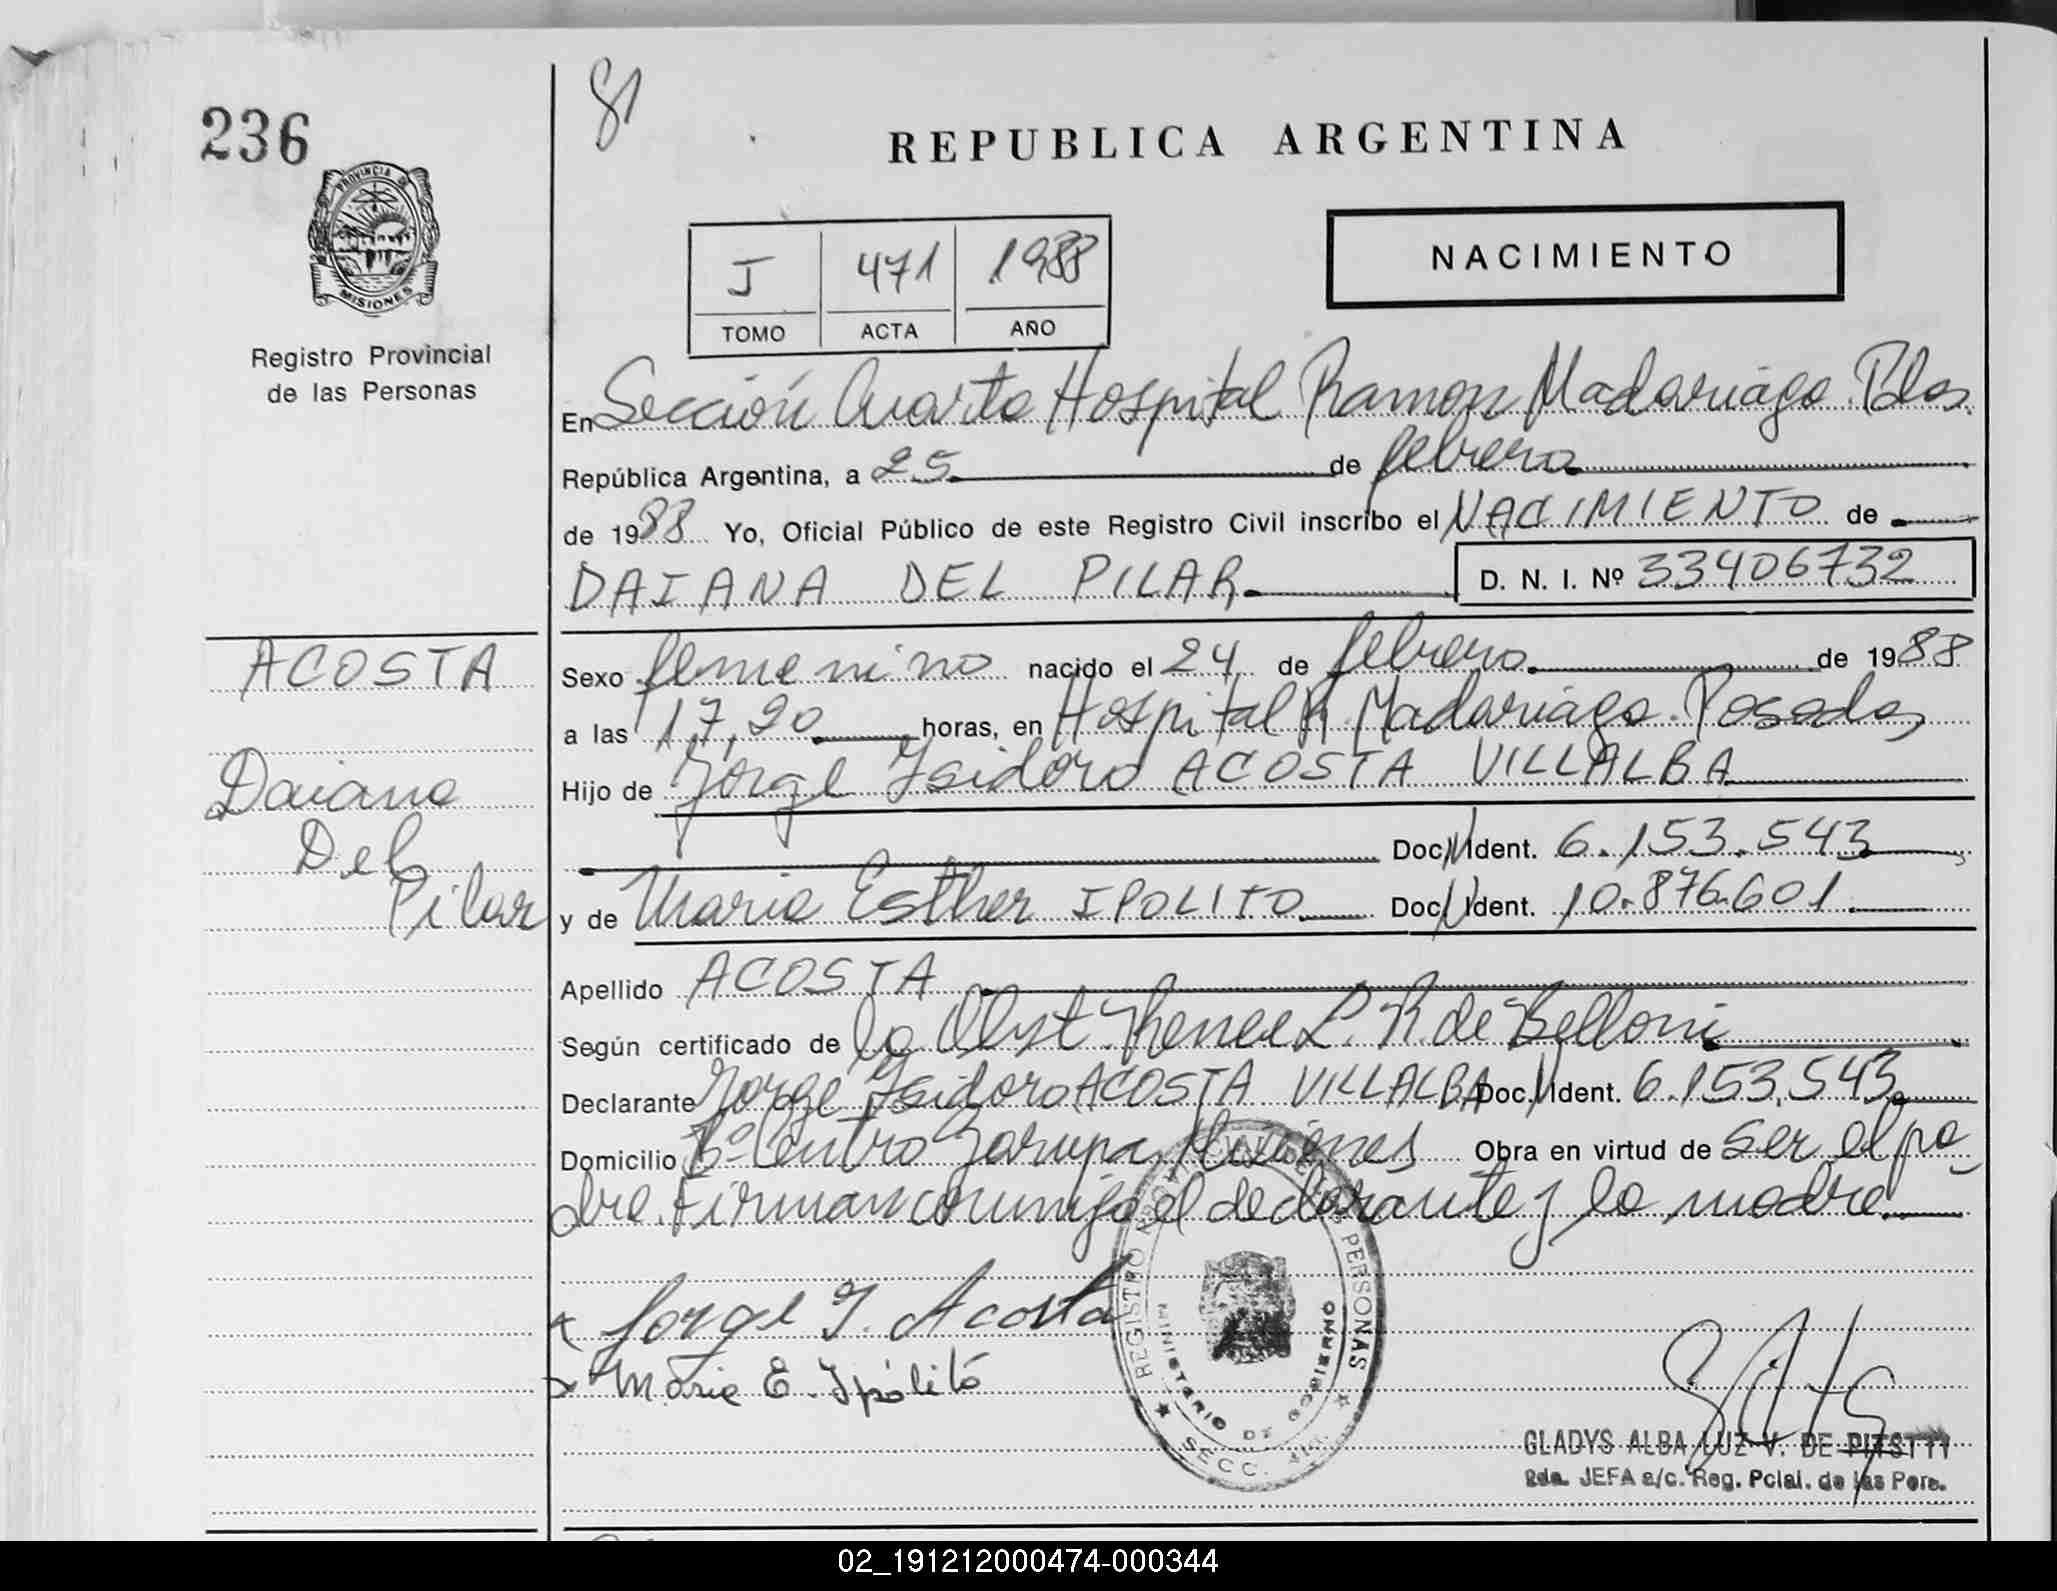 236
81
REPUBLICA ARGENTINA
PROVINCIA DE
MISIONES
Registro Provincial
de las Personas
J 471 1988
TOMO ACTA AÑO
NACIMIENTO
En Sección Cuarta Hospital Ramon Madariaga. Pdas.
República Argentina, a 25 de febrero
de 1988 Yo, Oficial Público de este Registro Civil inscribo el NACIMIENTO de
DAIANA DEL PILAR D. N. I. Nº 33406732
ACOSTA
Daiana
Del
Pilar
Sexo femenino nacido el 24 de febrero de 1988
a las 17,20 horas, en Hospital R. Madariaga. Posadas
Hijo de Jorge Isidoro ACOSTA VILLALBA
Doc. Ident. 6.153.543
y de Maria Esther IPOLITO Doc. Ident. 10.876.601.
Apellido ACOSTA
Según certificado de la Obst. Renee L. R. de Belloni
Declarante Jorge Isidoro ACOSTA VILLALBA Doc. Ident. 6.153.543
Domicilio Bº Centro Garupa, Misiones Obra en virtud de ser el pa-
dre. Firman conmigo el declarante y la madre.
Jorge I. Acosta
Maria E. Ipólito
REGISTRO PROVINCIAL DE LAS PERSONAS
MINISTERIO DE GOBIERNO
SECC. 4ta.
GLADYS ALBA LUZ V. DE
JEFA a/c. Reg. Pcial. de las Pers.
02_191212000474-000344